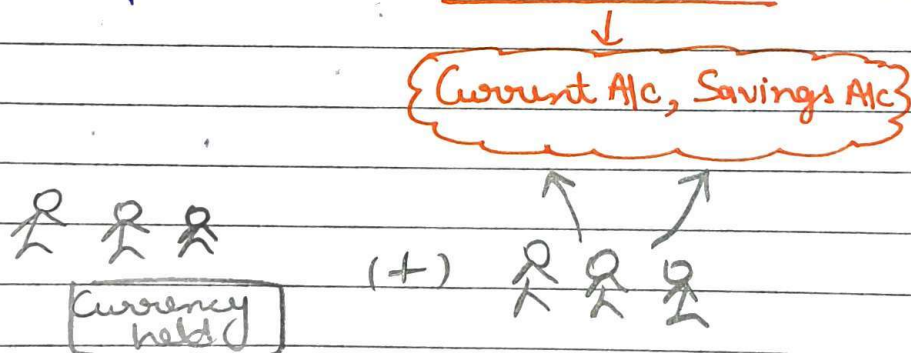 Current A/c, Savings A/c
(+)
Currency
held